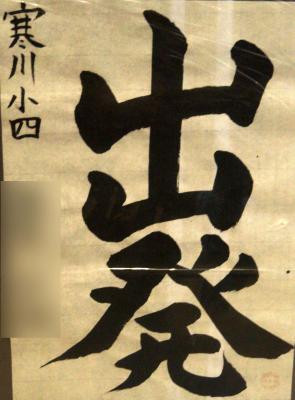 出発
寒川小四